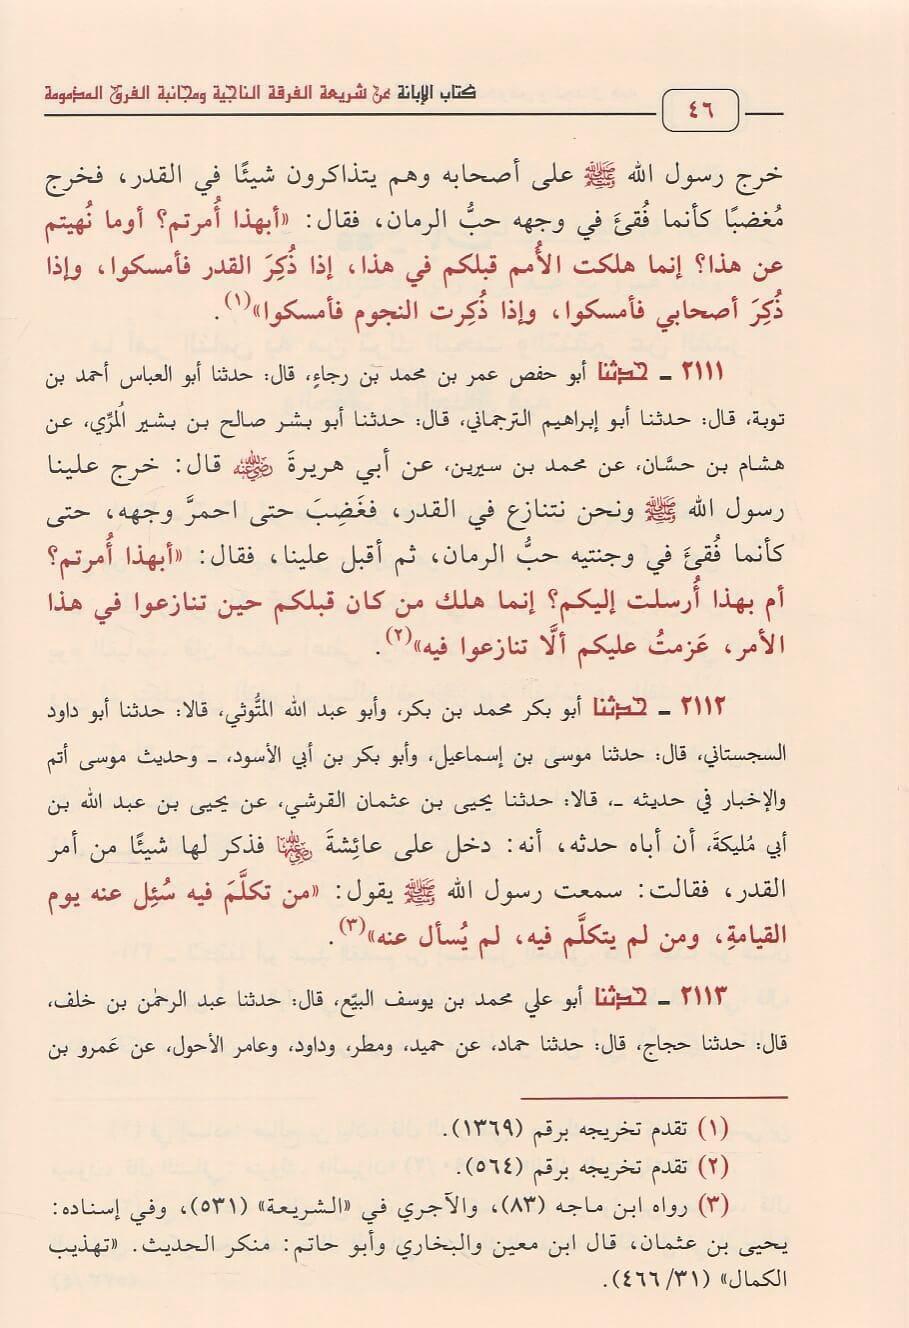 كتاب الإبانة عن شريعة الفرقة الناجية ومجانبة الفرق المذمومة
٤٦
خرج رسول الله ﷺ على أصحابه وهم يتذاكرون شيئًا في القدر، فخرج
مُغضبًا كأنما فُقئَ في وجهه حبُّ الرمان، فقال: «أبهذا أُمرتم؟ أوما نُهيتم
عن هذا؟ إنما هلكت الأُمم قبلكم في هذا، إذا ذُكِرَ القدر فأمسكوا، وإذا
ذُكِرَ أصحابي فأمسكوا، وإذا ذُكِرت النجوم فأمسكوا»(١).
٢١١١ ـ حدثنا أبو حفص عمر بن محمد بن رجاءٍ، قال: حدثنا أبو العباس أحمد بن
توبة، قال: حدثنا أبو إبراهيم الترجماني، قال: حدثنا أبو بشر صالح بن بشير الُمرِّي، عن
هشام بن حسَّان، عن محمد بن سيرين، عن أبي هريرةَ رضي الله عنه قال: خرج علينا
رسول الله ﷺ ونحن نتنازع في القدر، فغَضِبَ حتى احمرَّ وجهه، حتى
كأنما فُقئَ في وجنتيه حبُّ الرمان، ثم أقبل علينا، فقال: «أبهذا أُمرتم؟
أم بهذا أُرسلت إليكم؟ إنما هلك من كان قبلكم حين تنازعوا في هذا
الأمر، عَزمتُ عليكم ألَّا تنازعوا فيه»(٢).
٢١١٢ ـ حدثنا أبو بكر محمد بن بكر، وأبو عبد الله المتُّوثي، قالا: حدثنا أبو داود
السجستاني، قال: حدثنا موسى بن إسماعيل، وأبو بكر بن أبي الأسود، ـ وحديث موسى أتم
والإخبار في حديثه ـ، قالا: حدثنا يحيى بن عثمان القرشي، عن يحيى بن عبد الله بن
أبي مُليكةَ، أن أباه حدثه، أنه: دخل على عائِشةَ رضي الله عنها فذكر لها شيئًا من أمر
القدر، فقالت: سمعت رسول الله ﷺ يقول: «من تكلَّمَ فيه سُئِل عنه يوم
القيامةِ، ومن لم يتكلَّم فيه، لم يُسأل عنه»(٣).
٢١١٣ ـ حدثنا أبو علي محمد بن يوسف البيّع، قال: حدثنا عبد الرحمٰن بن خلف،
قال: حدثنا حجاج، قال: حدثنا حماد، عن حميد، ومطر، وداود، وعامر الأحول، عن عَمرو بن
(١) تقدم تخريجه برقم (١٣٦٩).
(٢) تقدم تخريجه برقم (٥٦٤).
(٣) رواه ابن ماجه (٨٣)، والآجري في «الشريعة» (٥٣١)، وفي إسناده:
يحيى بن عثمان، قال ابن معين والبخاري وأبو حاتم: منكر الحديث. «تهذيب
الكمال» (٣١/ ٤٦٦).